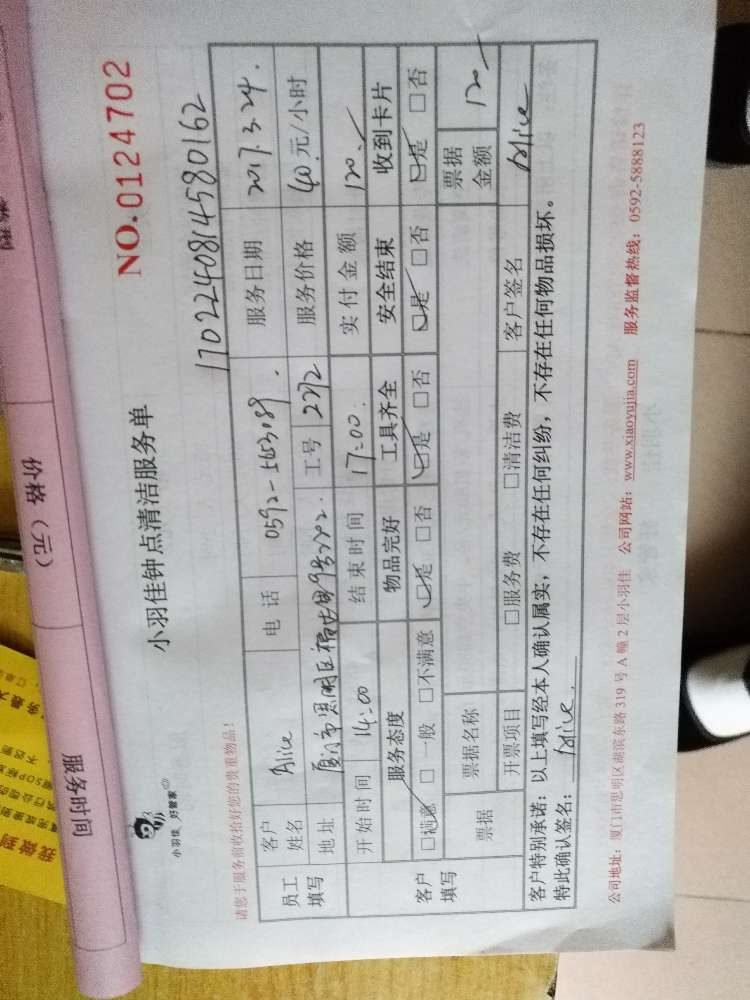 小羽佳钟点清洁服务单
NO.0124702
小羽佳 好管家
请您于服务前收拾好您的贵重物品!
1702240814580162
员工填写
客户姓名 Alice 电话 服务日期 2017.3.24.
地址 工号 2272 服务价格 40.元/小时
开始时间 14:00 结束时间 17:00. 实付金额 120.
客户填写
服务态度 物品完好 工具齐全 安全结束 收到卡片
□满意 □一般 □不满意 □是 □否 □是 □否 □是 □否 □是 □否
票据 票据名称 票据金额 120
开票项目 □服务费 □清洁费 客户签名 Alice
客户特别承诺:以上填写经本人确认属实,不存在任何纠纷,不存在任何物品损坏。
特此确认签名: Alice.
公司地址:厦门市思明区湖滨东路 319 号 A 幢 2 层小羽佳 公司网站:www.xiaoyujia.com 服务监督热线:0592-5888123
服务时间
价格(元)
我做到